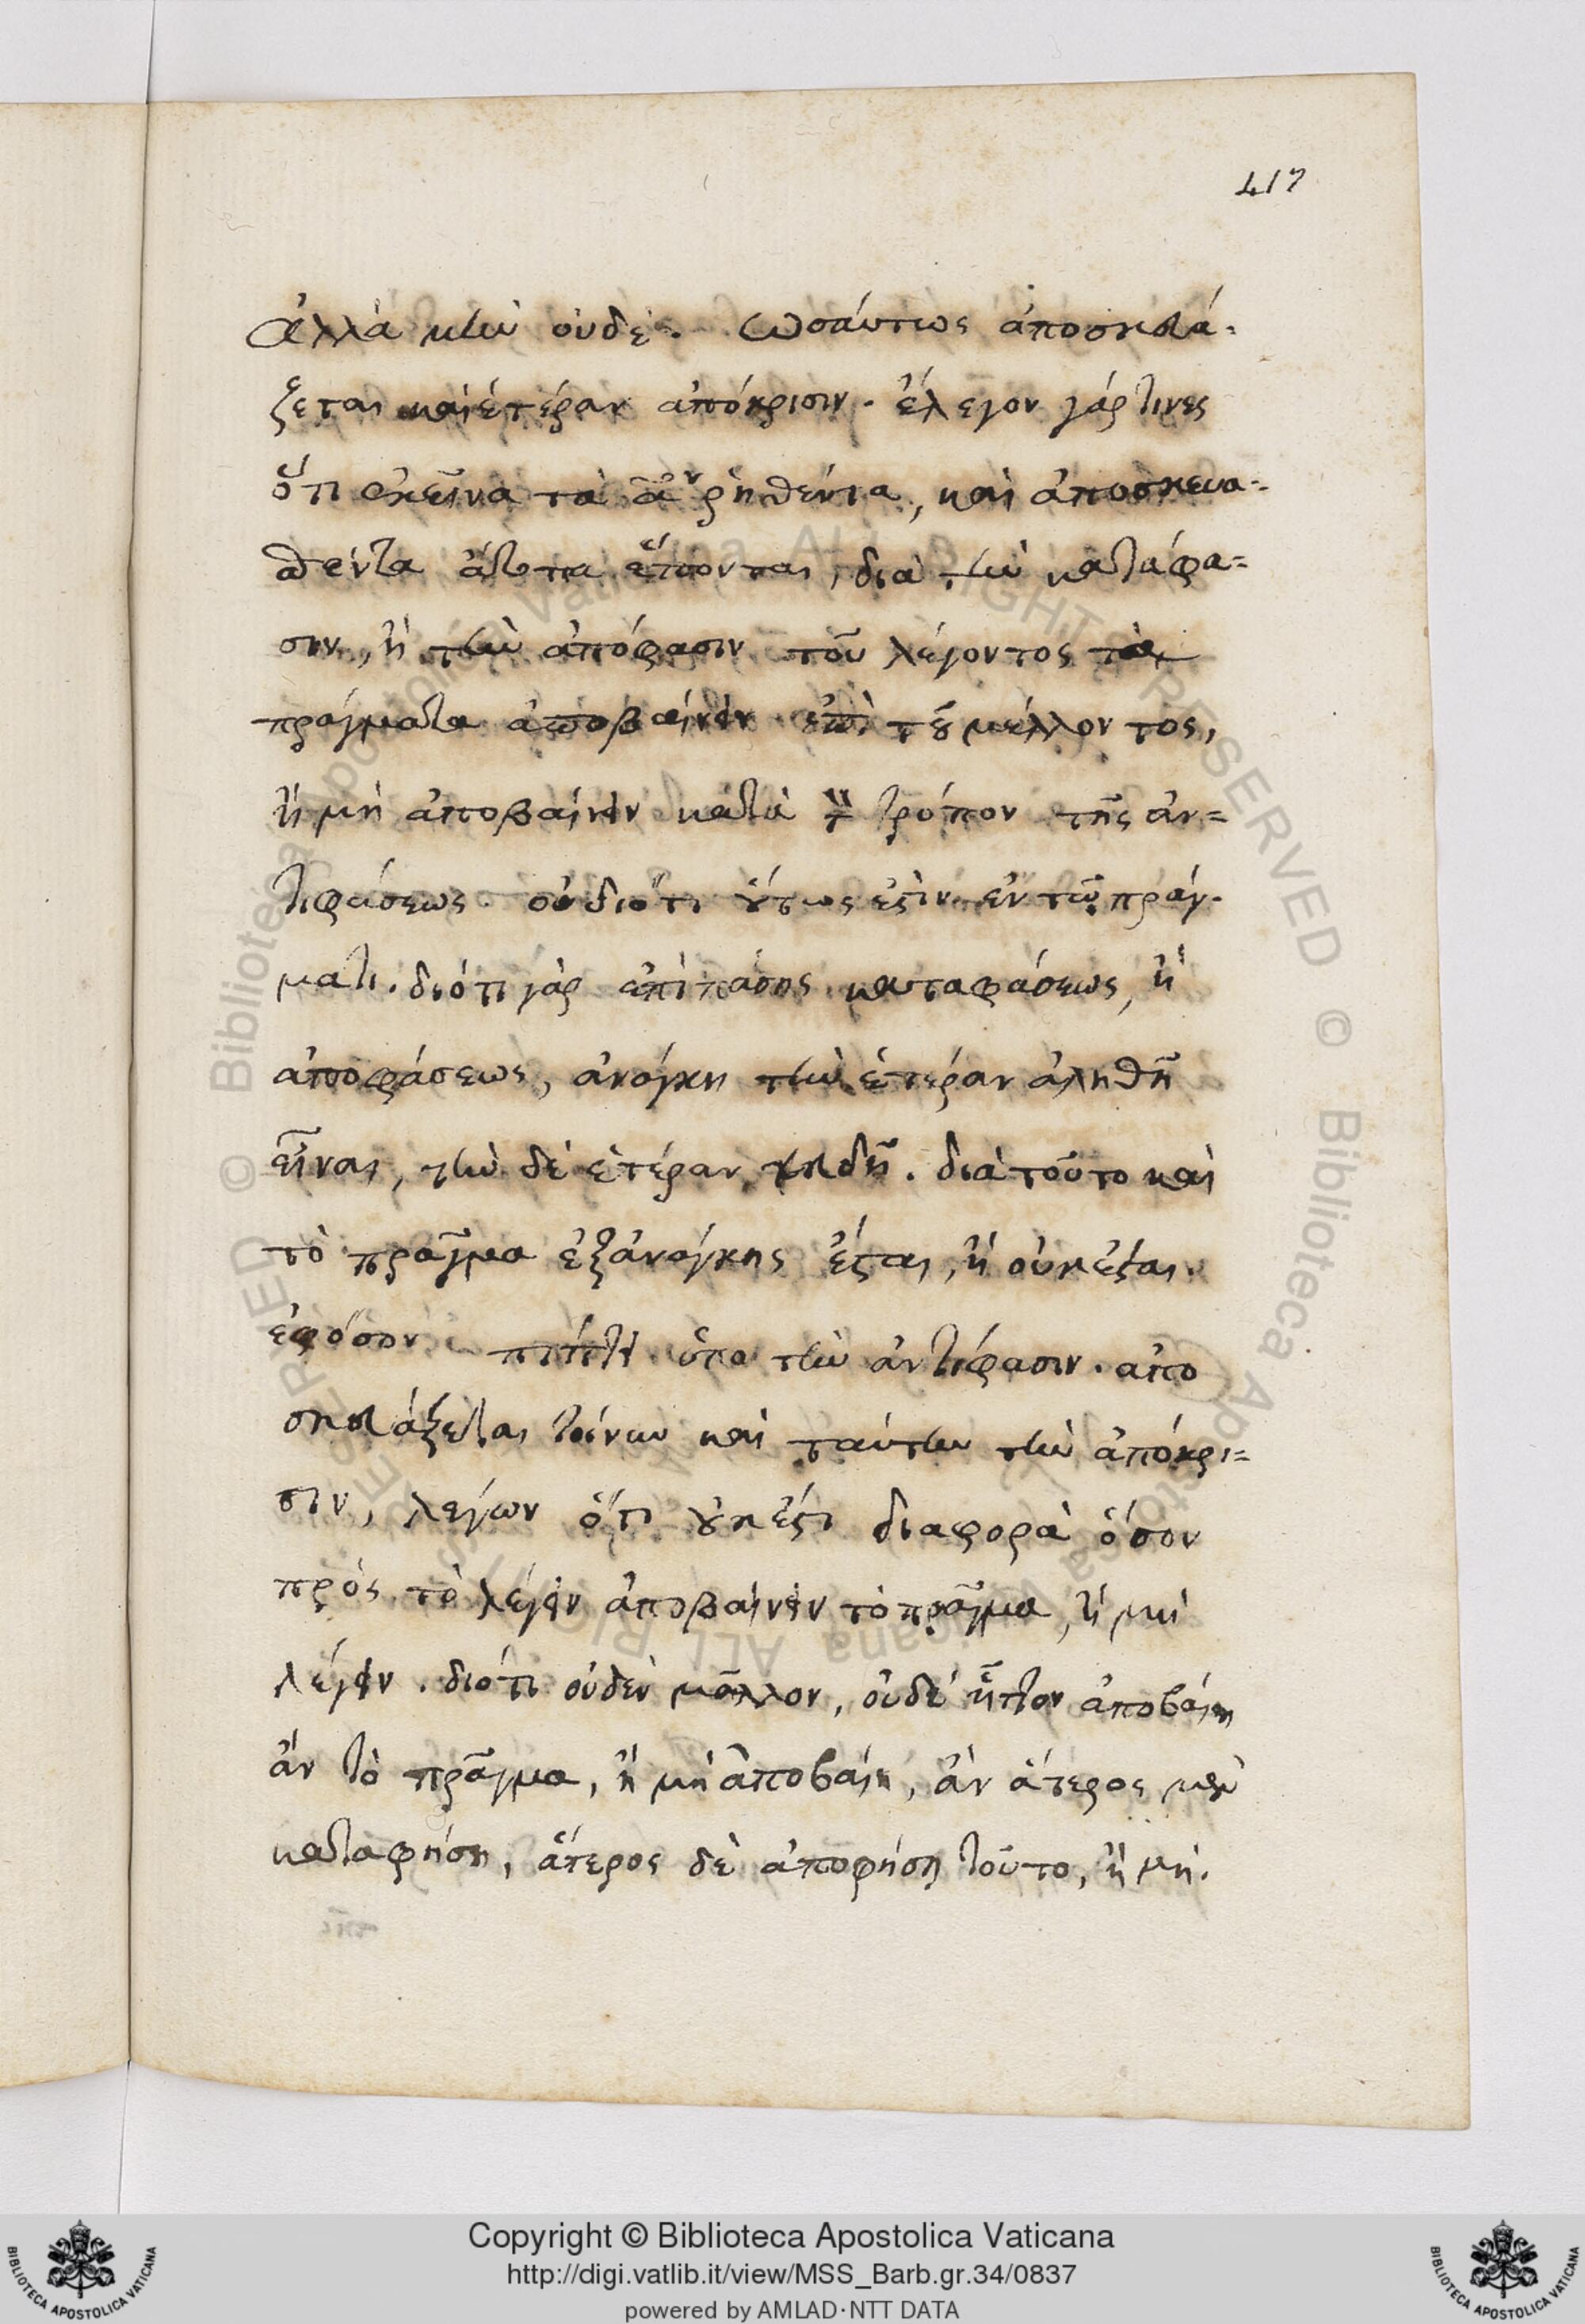 417
Ἀλλὰ μὴν οὐδέ. Ὡσαύτως ἀποσκευά-
ζεται καὶ ἑτέραν ἀπόκρισιν. ἔλεγον γάρ τινες
ὅτι ἐκεῖνα τὰ ῥηθέντα, καὶ ἀποσκευα-
θέντα ἄτοπα ἕπονται, διὰ τὴν κατάφα=
σιν, ἢ τὴν ἀπόφασιν τοῦ λέγοντος τὰ
πράγματα ἀποβαίνειν ἐπὶ τοῦ μέλλοντος,
ἢ μὴ ἀποβαίνειν κατὰ τὸν τρόπον τῆς ἀν=
τιφάσεως. οὐ διότι οὕτως ἐστὶν ἐν τῷ πράγ-
ματι. διότι γὰρ ἐπὶ πάσης καταφάσεως, ἢ
ἀποφάσεως, ἀνάγκη τὴν ἑτέραν ἀληθῆ
εἶναι, τὴν δὲ ἑτέραν ψευδῆ. διὰ τοῦτο καὶ
τὸ πρᾶγμα ἐξ ἀνάγκης ἔσται, ἢ οὐκ ἔσται.
ἐφόσον πίπτει ὑπὸ τὴν ἀντίφασιν. ἀπο
σκευάζεται τοίνυν καὶ ταύτην τὴν ἀπόκρι=
σιν, λέγων ὅτι οὐκ ἔστι διαφορὰ ὅσον
πρὸς τὸ λέγειν ἀποβαίνειν τὸ πρᾶγμα, ἢ μὴ
λέγειν. διότι οὐδὲν μᾶλλον, οὐδὲ ἧττον ἀποβαίη
ἂν τὸ πρᾶγμα, ἢ μὴ ἀποβαίη, ἂν ἅτερος μὲν
καταφήσῃ, ἅτερος δὲ ἀποφήσῃ τοῦτο, ἢ μή.
© Biblioteca Apostolica Vaticana ALL RIGHTS RESERVED
© Biblioteca Apostolica Vaticana ALL RIGHTS RESERVED
Copyright © Biblioteca Apostolica Vaticana
http://digi.vatlib.it/view/MSS_Barb.gr.34/0837
powered by AMLAD·NTT DATA
BIBLIOTECA APOSTOLICA VATICANA
BIBLIOTECA APOSTOLICA VATICANA